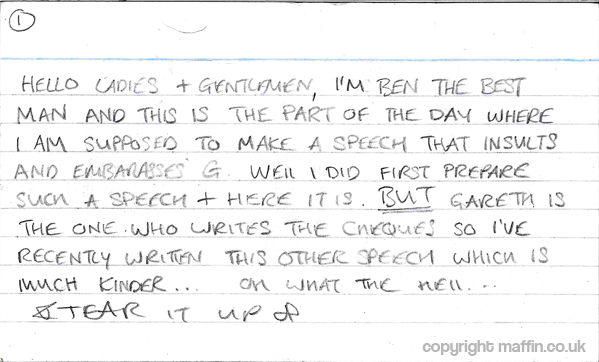 1
HELLO LADIES + GENTLEMEN, I'M BEN THE BEST
MAN AND THIS IS THE PART OF THE DAY WHERE
I AM SUPPOSED TO MAKE A SPEECH THAT INSULTS
AND EMBARASSES G. WELL I DID FIRST PREPARE
SUCH A SPEECH + HERE IT IS. BUT GARETH IS
THE ONE WHO WRITES THE CHEQUES SO I'VE
RECENTLY WRITTEN THIS OTHER SPEECH WHICH IS
MUCH KINDER... OH WHAT THE HELL...
TEAR IT UP
copyright maffin.co.uk